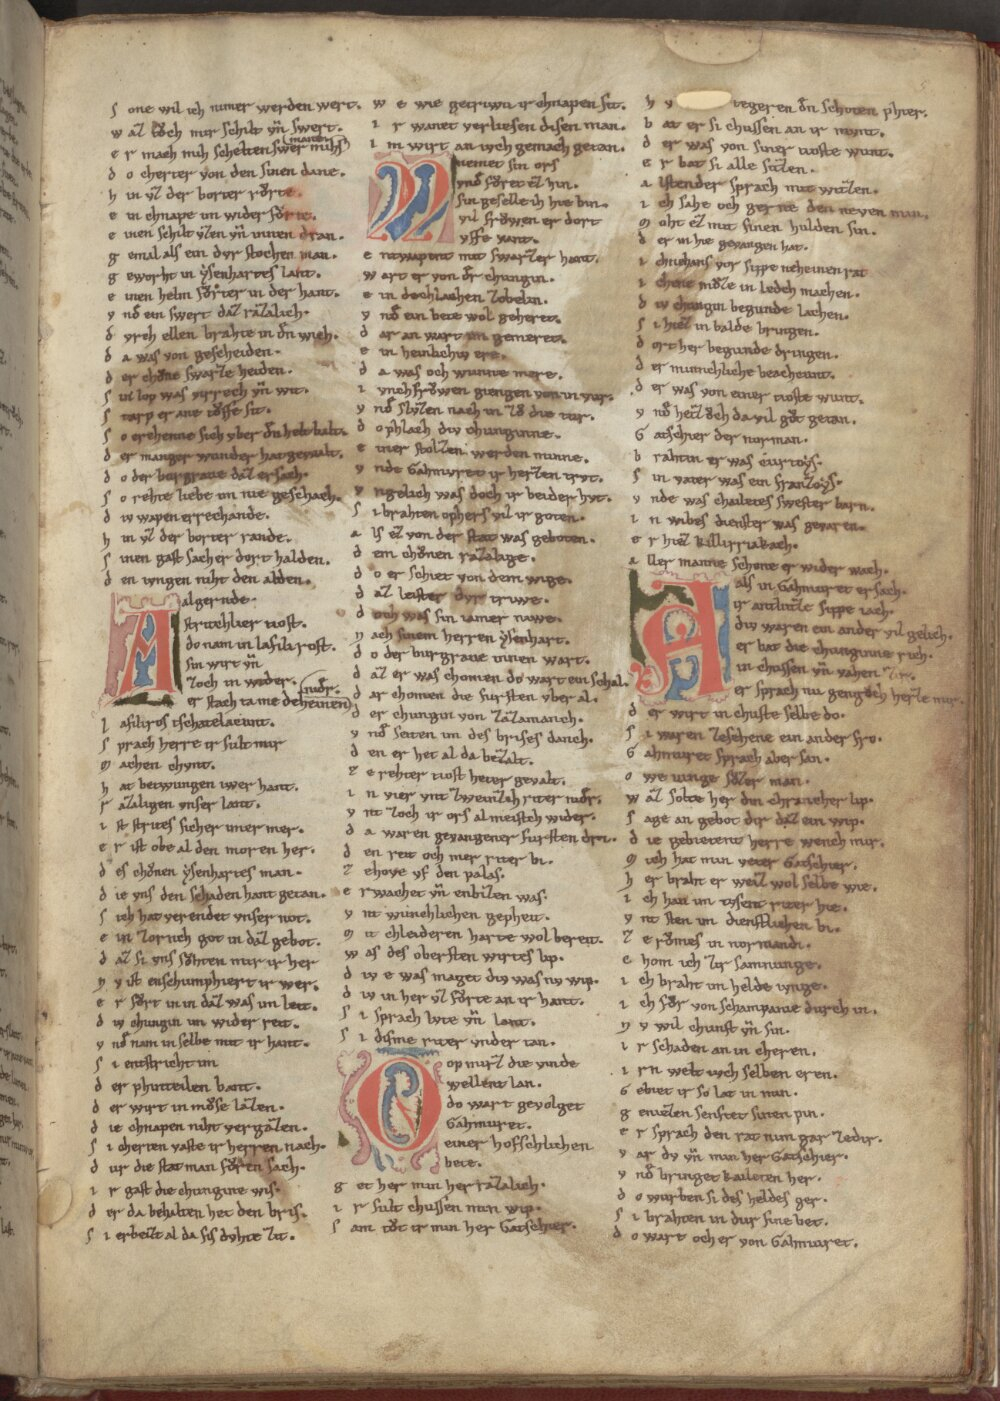 s one wil ich nimer werden wert.
w aȥ toͮch mir schilt vn̄ swert.
e r mach mih schelten swer mihs
manen
d o cherter von den sinen dane.
h in vȥ der borter roͮrte.
e in chnape im wider foͮrte.
e inen schilt vȥen vn̄ innen dran.
g emal als ein dvr stochen man.
g eworht in ysenhartes lant.
e inen helm foͮrter in der hant.
v nd ein swert daȥ raȥalich.
d vrch ellen brahte in den wich.
d a was von gescheiden.
d er chone swarȥe heiden.
s in lop was virrech vn̄ wit.
s tarp er ane toͮffe sit.
s o erchenne sich vber den helt balt.
d er manger wunder hat gewalt.
d o der borgraue daȥ ersach.
s o rehte liebe im nie geschach.
d iv wapen errechande.
h in vȥ der borter rande.
s inen gast sach er dort halden.
d en iungen niht den alden.
A l gernde
stritchlier tiost.
do nam in lasilirost.
sin wirt vn̄
ȥoch in wider.
er stach da me deheinen
nider.
l asiliros tschatelaeunt.
s prach herre ir sult mir
m achen chunt.
h at betwungen iwer hant.
r aȥaligen vnser lant.
i st strites sicher imer mer.
e r ist obe al den moren her.
d es chonen ysenhartes man.
d ie vns den schaden hant getan.
s ich hat verendet vnser not.
e in ȥornich got in daȥ gebot.
d aȥ si vns soͮhten mit ir her
n v ist enschumphiert ir wer.
e r foͮrt in in daȥ was im leit.
d iv chungin im wider reit.
v nd nam in selbe mit ir hant.
s i entstricht im
d er phinteilen bant.
d er wirt in moͮse laȥen.
d ie chnapen niht vergaȥen.
s i cherten vaste ir herren nach.
d ur die stat man foͮren sach.
i r gast die chungine wis.
d er da behalten het den bris.
s i erbeiȥt al da sis duhte ȥit.
w e wie getriwu ir chnapen sit.
i r wanet verliesen disen man.
i m wirt an iuch gemach getan.
N nemet sin ors
vnd foͮret eȥ hin.
sin geselle ih hie bin.
vil froͮwen er dort
vffe vant.
e ntwapent mit swarȥer hant.
w art er von der chungin.
e in dechlachen ȥobelin.
v nd ein bete wol geheret.
d ar an wart im gemeret.
e in heinlichiu ere.
d a was och niwne mere.
i vnchfroͮwen giengen von in vur.
v nd sluȥen nach in ȥo die tur.
d o phlach div chunginne.
e iner stolȥen werden minne.
v nde Gahmuret ir herȥen trut.
v ngelich was doch ir beider hut.
s i brahten ophers vil ir goten.
a ls eȥ von der stat was geboten.
d em choͮnen raȥalige.
d o er schiet von dem wige.
d aȥ leister dvr triwe.
d och was sin iamer niwe.
n ach sinem herren ysenhart.
d o der burgraue innen wart.
d aȥ er was chomen do wart ein schal.
d ar chomen die fursten vber al.
d er chungin von ȥaȥamanch.
v nd seiten im des brises danch.
d en er het al da beȥalt.
ȥ e rehter tiost heter gevalt.
i n vier vnt ȥweinȥich riter nider.
v nt ȥoch ir ors al meistch wider.
d a waren gevangener fursten dri.
d en reit och mer riter bi.
ȥ e houe vf den palas.
e rwachet vn̄ enbiȥen was.
v nt wunchlichen gepheit.
m it chleideren harte wol bereit.
w as des obersten wirtes lip.
d iv e was maget div was nu wip.
d iv in her vȥ foͮrte an ir hant.
s i sprach lute vn̄ lant.
s i disme riter vnder tan.
O op mirȥ die vinde
wellent lan.
do wart gevolget
Gahmuret.
einer hofschlichen
bete.
g et her min her raȥalich.
i r sult chussen min wip.
s am toͮt ir min her Gatschier.
h v tegeren den schoten phier.
b at er si chussen an ir munt.
d er was von siner tioste wunt.
e r bat si alle siȥen.
a l stender sprach mit wiȥen.
i ch sahe och gerne den neven min.
m oht eȥ mit sinen hulden sin.
d er in hie gevangen hat.
i chn hans vor sippe neheinen rat
i chene moͮȥe in ledch machen.
d iv chungin begunde lachen.
s i hieȥ in balde bringen.
d ort her begunde dringen.
d er minnichliche beacheunt.
d er was von einer tioste wunt.
v nd heiȥ doch da vil goͮt getan.
G atschier der norman.
b rahtin er was curtoys.
s in vater was ein franȥoys.
v nde was chailetes swester barn.
i n wibes dienster was gevaren.
e r hieȥ killirriakach.
a ller manne schone er wider wach.
A als in Gahmuret ersach.
ir antluȥe sippe iach.
div waren ein ander vil gelich.
er bat die chunginne rich.
in chussen vn̄ vahen ȥir.
er sprach nu gengoch herȥe mir.
d er wirt in chuste selbe do.
s i waren ȥesehene ein ander fro.
G ahmuret sprach aber san.
o we iunge soͮȥer man.
w aȥ solte her din chrancher lip.
s age an gebot dir daȥ ein wip.
d ie gebietent herre wench mir.
m ich hat min veter Gatschier.
h er braht er weiȥ wol selbe wie.
i ch han im tusent riter hie.
v nt sten im dienstlichen bi.
ȥ e roͮmes in normandi.
c hom ich ȥir samnunge.
i ch braht im helde iunge.
i ch foͮr von schampanie durch in.
n v wil chunst vn̄ sin.
i r schaden an in cheren.
i rn welt iuch selben eren.
G ebiet ir so lat in min.
g enieȥen senftet sinen pin.
e r sprach den rat nim gar ȥe dir.
v ar du vn̄ min her Gatschier.
v nd bringet kaileten her.
d o wurben si des heldes ger.
s i brahten in dur sine bet.
d o wart och er von Gahmuret.